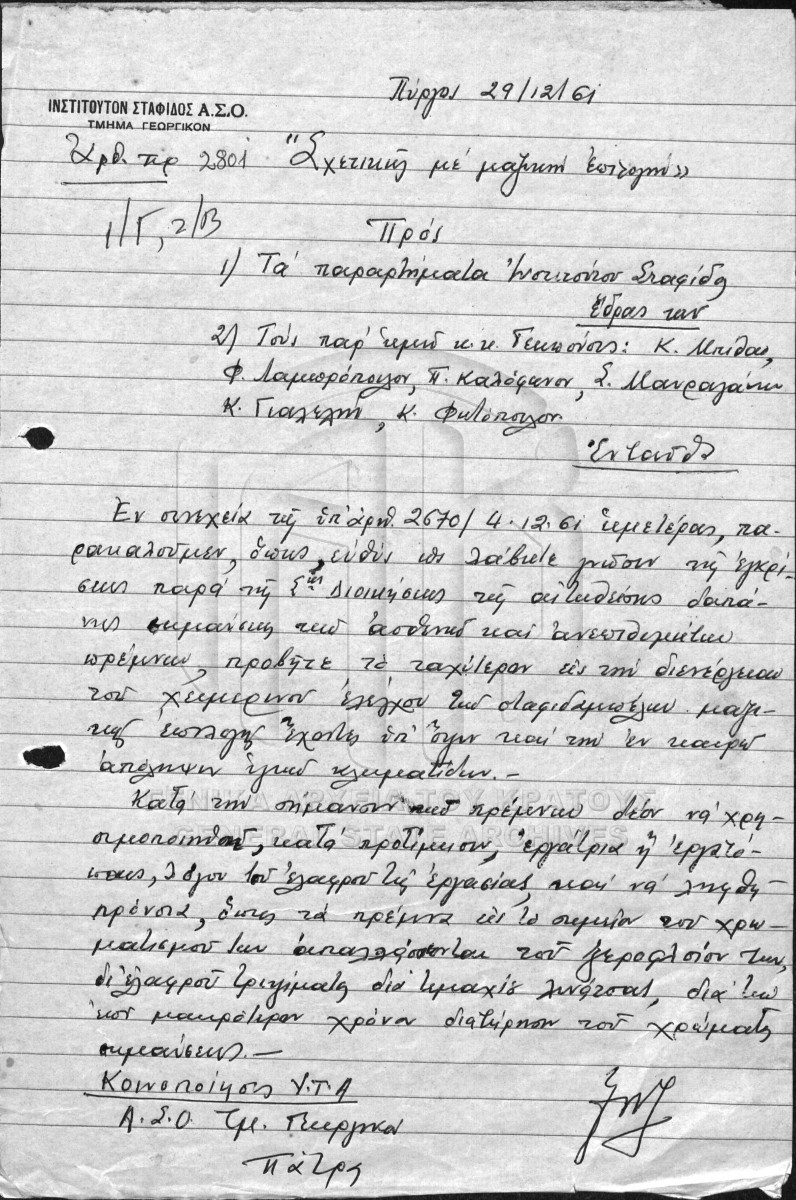 Πύργος 29/12/61
ΙΝΣΤΙΤΟΥΤΟΝ ΣΤΑΦΙΔΟΣ Α.Σ.Ο.
ΤΜΗΜΑ ΓΕΩΡΓΙΚΟΝ
Ἀρθ. πρ 2801 "Σχετικῶς μέ μαζικήν ἐπιλογήν»
1/Γ, 2/Β Πρός
1) Τά παραρτήματα Ἰνστιτούτου Σταφίδος
Ἕδρας των
2) Τούς παρ' ἡμῖν κ.κ. Γεωπόνους: Κ. Μπίθαν,
Φ. Λαμπρόπουλον, Π. Καλόφωνον, Σ. Μαυραγάνην
Κ. Γιαλελήν, Κ. Φωτόπουλον
Ἐνταῦθα
Ἐν συνεχείᾳ τῆς ὑπ' ἀριθ. 2670/4.12.61 ἡμετέρας, πα-
ρακαλοῦμεν, ὅπως, εὐθύς ὡς λάβητε γνῶσιν τῆς ἐγκρί-
σεως παρά τῆς Σῆς Διοικήσεως τῆς αἰτηθείσης δαπά-
νης σημάνσεως τῶν ἀσθενῶν καί ἀνεπιθυμήτων
πρέμνων, προβῆτε τό ταχύτερον εἰς τήν διενέργειαν
του χειμερινοῦ ἐλέγχου τῶν σταφιδαμπέλων μαζι-
κῆς ἐπιλογῆς ἔχοντες ὑπ' ὄψιν καί τήν ἐν καιρῷ
ἀπόληψιν ὑγιῶν κληματίδων.—
ΓΕΝΙΚΑ ΑΡΧΕΙΑ ΤΟΥ ΚΡΑΤΟΥΣ
GENERAL STATE ARCHIVES
Κατά τήν σήμανσιν τῶν πρέμνων δέον νά χρη-
σιμοποιηθοῦν, κατά προτίμησιν, ἐργάτρια ἤ ἐργατό-
παις, λόγου τοῦ ἐλαφροῦ τῆς ἐργασίας, καί νά ληφθῇ
πρόνοια, ὅπως τά πρέμνα εἰς τό σημεῖον τοῦ χρω-
ματισμοῦ των ἀπαλλάσσονται τοῦ ξηροφλοίου των,
δι' ἐλαφροῦ τριψίματος διά τεμαχίου λινάτσας, διά τήν
ἐπί μακρότερον χρόνον διατήρησιν τοῦ χρώματος
σημάνσεως.—
Κοινοποίησις Υ.Τ.Α
Α.Σ.Ο. Τμ. Γεωργικόν
Πάτρας